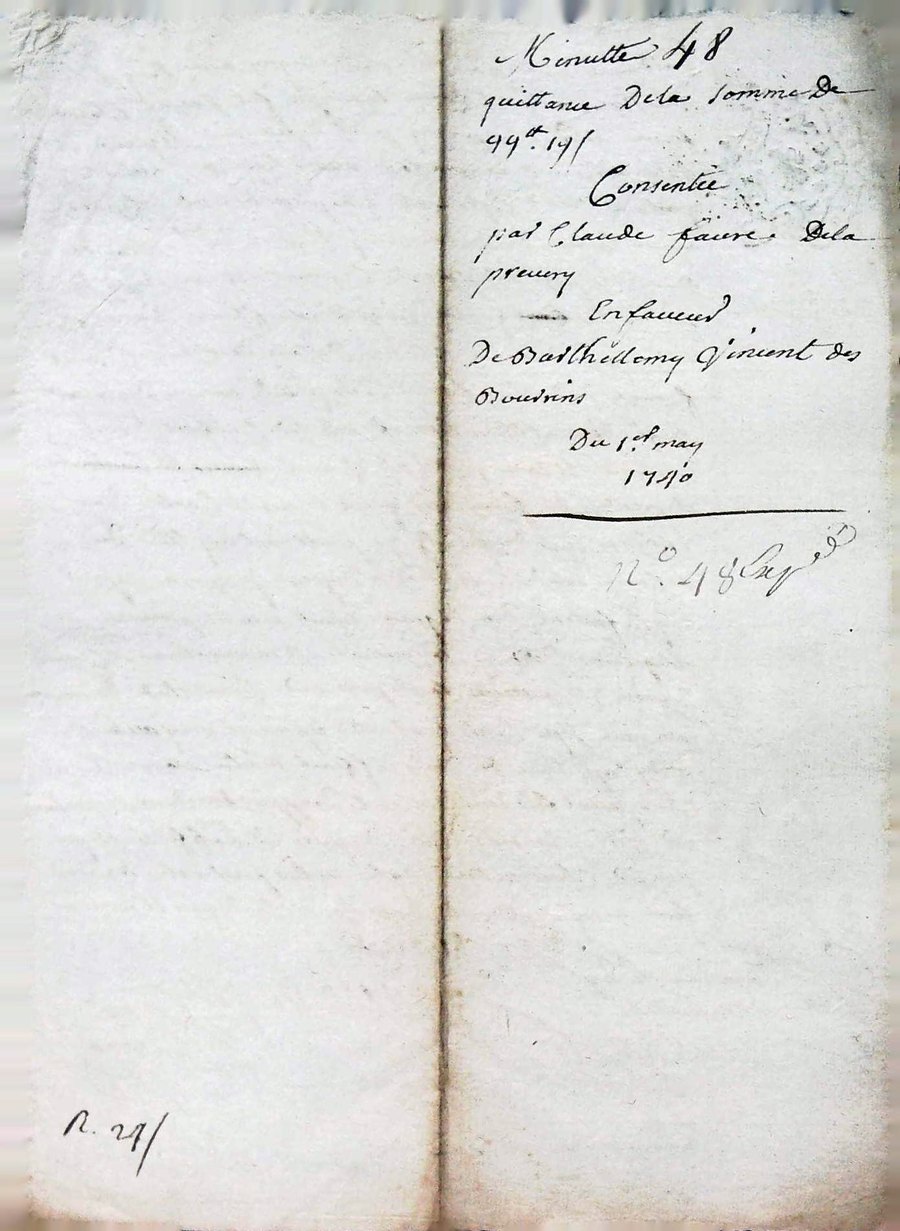 Minutte 48
quittance Dela somme De
99ᵗᵗ. 19ſ
Consentie
par Claude faure Dela
preuery
En faueur
De Barthellemy Vincent des
Bourins
Du 1.er may
1740
N.o 48 Exp.ée
R. 24ſ